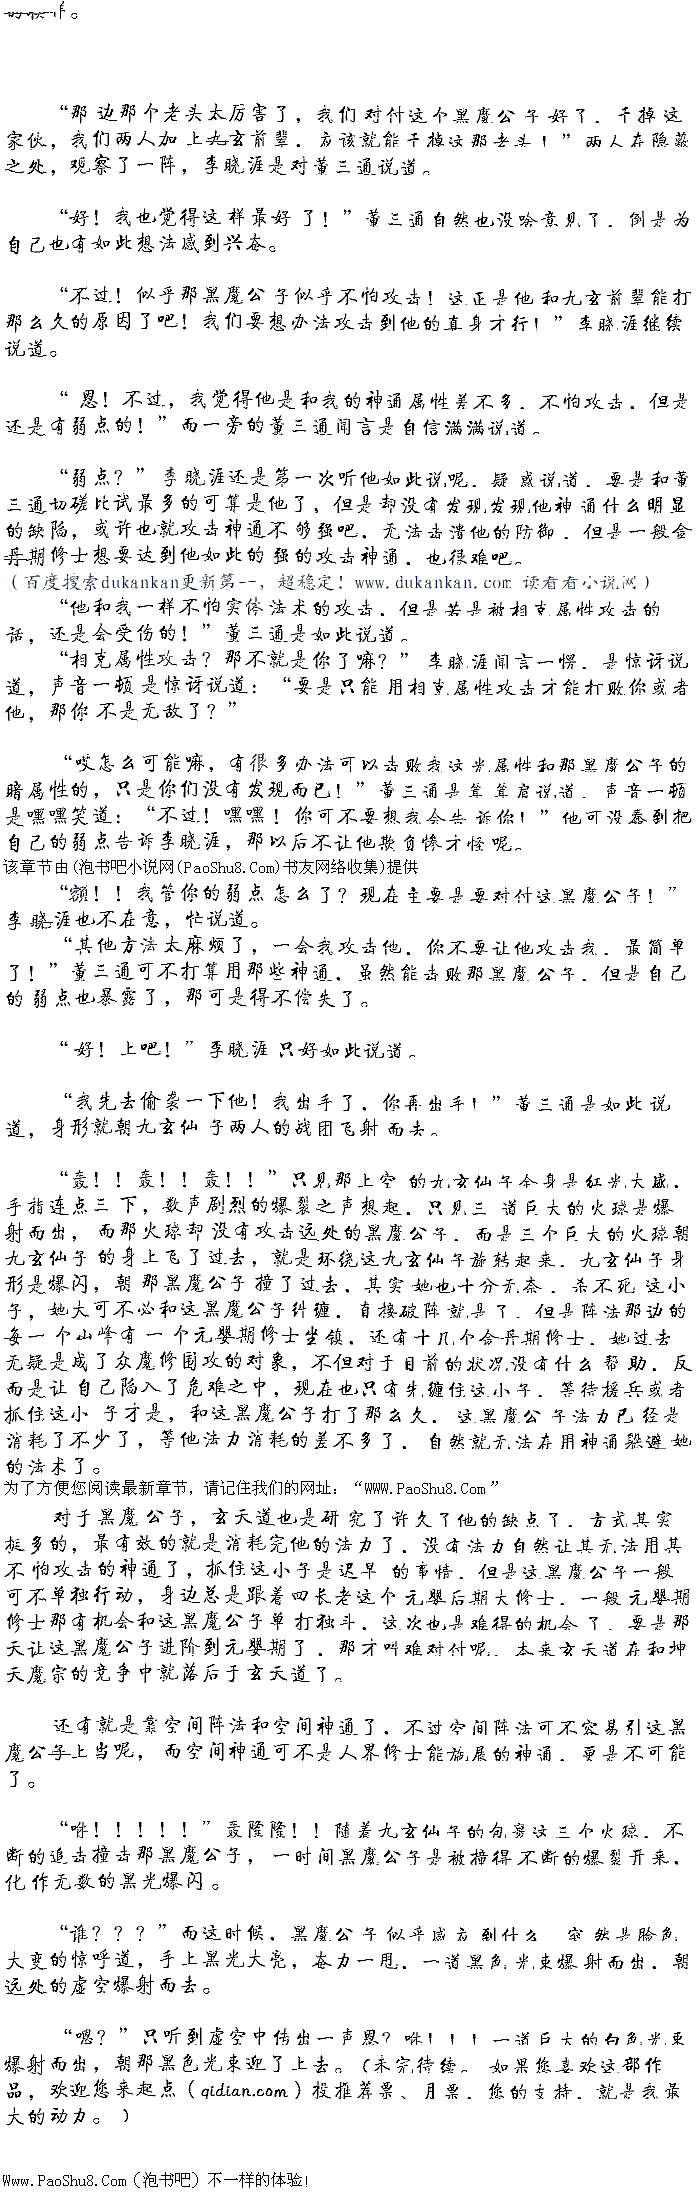 的软作。
“那边那个老头太厉害了，我们对付这个黑魔公子好了．干掉这
家伙，我们两人加上九玄前辈．应该就能干掉这那老头！”两人在隐蔽
之处，观察了一阵，李晓涯是对董三通说道。
“好！我也觉得这样最好了！”董三通自然也没啥意见了．倒是为
自己也有如此想法感到兴奋。
“不过！似乎那黑魔公子似乎不怕攻击！这正是他和九玄前辈能打
那么久的原因了吧！我们要想办法攻击到他的真身才行！”李晓涯继续
说道。
“恩！不过，我觉得他是和我的神通属性差不多．不怕攻击．但是
还是有弱点的！”而一旁的董三通闻言是自信满满说道。
“弱点？”李晓涯还是第一次听他如此说呢．疑惑说道．要是和董
三通切磋比试最多的可算是他了，但是却没有发现发现他神通什么明显
的缺陷，或许也就攻击神通不够强吧．无法击溃他的防御．但是一般金
丹期修士想要达到他如此的强的攻击神通．也很难吧。
（百度搜索dukankan更新第--，超稳定！www.dukankan.com 读看看小说网）
“他和我一样不怕实体法术的攻击．但是若是被相克属性攻击的
话，还是会受伤的！”董三通是如此说道。
“相克属性攻击？那不就是你了嘛？”李晓涯闻言一愣．是惊讶说
道，声音一顿是惊讶说道：“要是只能用相克属性攻击才能打败你或者
他，那你不是无敌了？”
“哎怎么可能嘛，有很多办法可以击败我这光属性和那黑魔公子的
暗属性的，只是你们没有发现而已！”董三通是耸耸肩说道．声音一顿
是嘿嘿笑道：“不过！嘿嘿！你可不要想我会告诉你！”他可没蠢到把
自己的弱点告诉李晓涯，那以后不让他欺负惨才怪呢。
该章节由(泡书吧小说网(PaoShu8.Com)书友网络收集)提供
“额！！我管你的弱点怎么了？现在主要是要对付这黑魔公子！”
李晓涯也不在意，忙说道。
“其他方法太麻烦了，一会我攻击他．你不要让他攻击我．最简单
了！”董三通可不打算用那些神通．虽然能击败那黑魔公子．但是自己
的弱点也暴露了，那可是得不偿失了。
“好！上吧！”李晓涯只好如此说道。
“我先去偷袭一下他！我出手了．你再出手！”董三通是如此说
道，身形就朝九玄仙子两人的战团飞射而去。
“轰！！轰！！轰！！”只见那上空的九玄仙子全身是红光大盛．
手指连点三下，数声剧烈的爆裂之声想起．只见三道巨大的火球是爆
射而出，而那火球却没有攻击远处的黑魔公子．而是三个巨大的火球朝
九玄仙子的身上飞了过去，就是环绕这九玄仙子旋转起来．九玄仙子身
形是爆闪，朝那黑魔公子撞了过去．其实她也十分无奈．杀不死这小
子，她大可不必和这黑魔公子纠缠．直接破阵就是了．但是阵法那边的
每一个山峰有一个元婴期修士坐镇．还有十几个金丹期修士．她过去
无疑是成了众魔修围攻的对象，不但对于目前的状况没有什么帮助．反
而是让自己陷入了危难之中，现在也只有先缠住这小子．等待援兵或者
抓住这小子才是，和这黑魔公子打了那么久．这黑魔公子法力已经是
消耗了不少了，等他法力消耗的差不多了．自然就无法在用神通躲避她
的法术了。
为了方便您阅读最新章节，请记住我们的网址：“WWW.PaoShu8.Com”
对于黑魔公子，玄天道也是研究了许久了他的缺点了．方式其实
挺多的，最有效的就是消耗完他的法力了．没有法力自然让其无法用其
不怕攻击的神通了，抓住这小子是迟早的事情．但是这黑魔公子一般
可不单独行动，身边总是跟着四长老这个元婴后期大修士．一般元婴期
修士那有机会和这黑魔公子单打独斗．这次也是难得的机会了．要是那
天让这黑魔公子进阶到元婴期了．那才叫难对付呢．本来玄天道在和坤
天魔宗的竞争中就落后于玄天道了。
还有就是靠空间阵法和空间神通了．不过空间阵法可不容易引这黑
魔公子上当呢，而空间神通可不是人界修士能施展的神通．更是不可能
了。
“咻！！！！！”轰隆隆！！随着九玄仙子的包裹这三个火球．不
断的追击撞击那黑魔公子，一时间黑魔公子是被撞得不断的爆裂开来．
化作无数的黑光爆闪。
“谁？？？”而这时候．黑魔公子似乎感应到什么 突然是脸色
大变的惊呼道，手上黑光大亮，奋力一甩．一道黑色光束爆射而出．朝
远处的虚空爆射而去。
“嗯？”只听到虚空中传出一声恩？咻！！！一道巨大的白色光束
爆射而出，朝那黑色光束迎了上去。（未完待续。如果您喜欢这部作
品，欢迎您来起点（qidian.com）投推荐票、月票．您的支持．就是我最
大的动力。）
Www.PaoShu8.Com（泡书吧）不一样的体验！